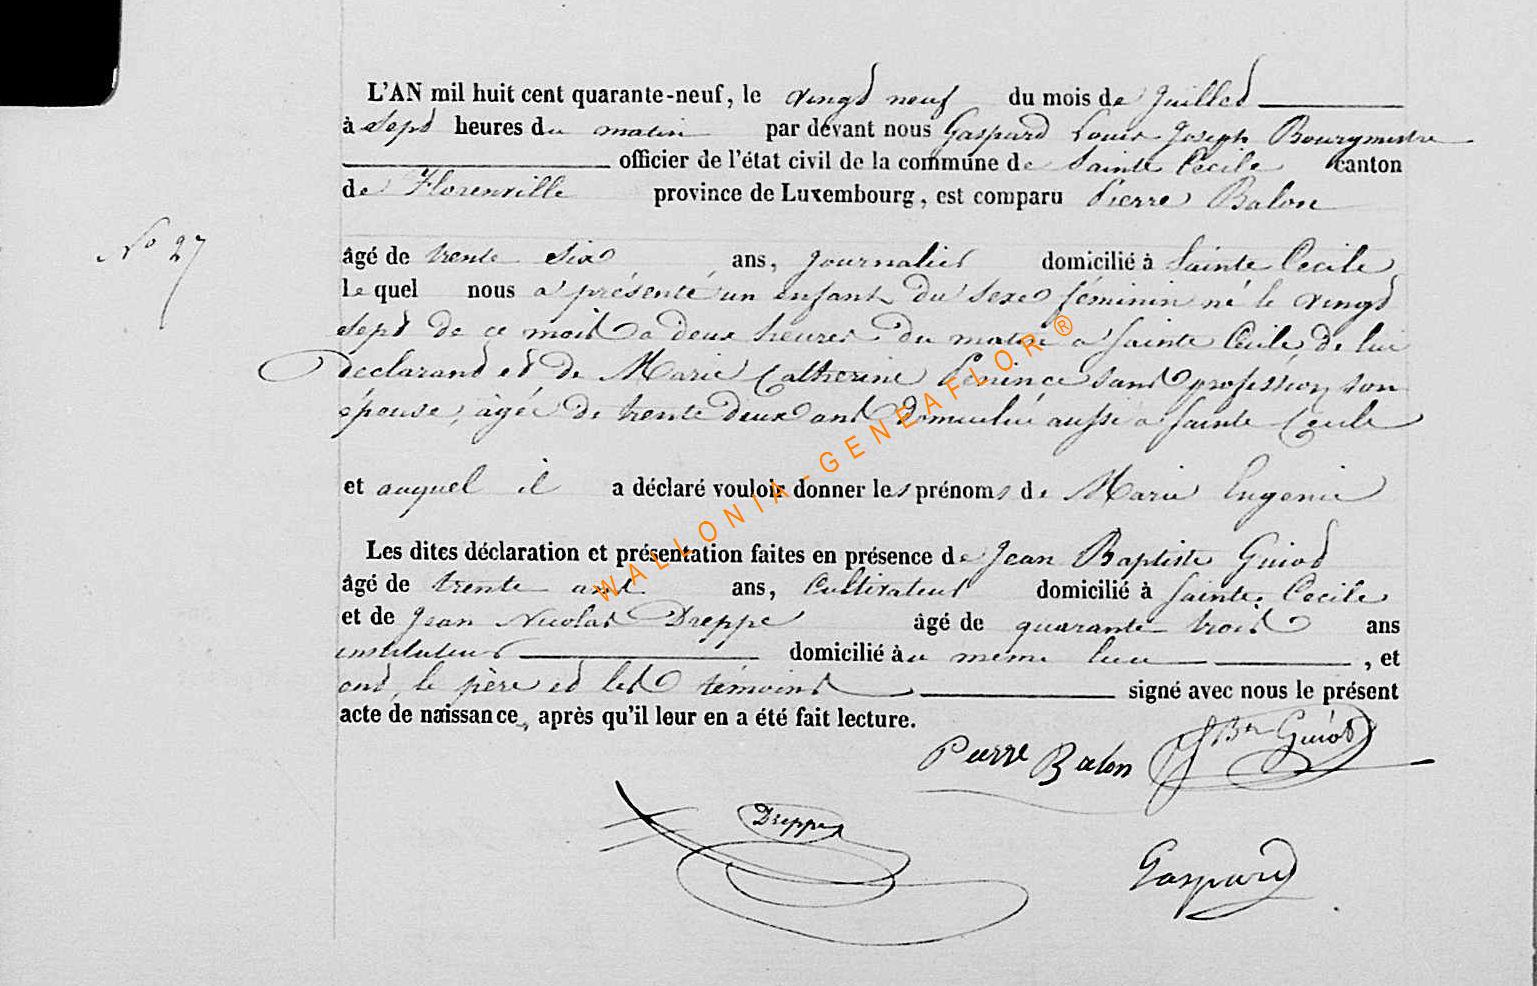 L'AN mil huit cent quarante-neuf, le vingt neuf du mois de Juillet
à sept heures du matin par devant nous Gaspard Louis Joseph Bourgmestre
officier de l'état civil de la commune de Sainte Cecile canton
de Florenville province de Luxembourg, est comparu Pierre Balon
N° 27
âgé de trente six ans, journalier domicilié à Sainte Cecile
lequel nous a présenté un enfant du sexe féminin né le vingt
sept de ce mois a deux heures du matin a Sainte Cecile, de lui
declarant et de Marie Catherine sans profession, son
épouse, âgée de trente deux ans domiciliée aussi a Sainte Cecile
et auquel il a déclaré vouloir donner les prénoms de Marie Eugenie
Les dites déclaration et présentation faites en présence de Jean Baptiste Guiot
âgé de trente ans ans, Cultivateur domicilié à Sainte Cecile
et de Jean Nicolas Dreppe âgé de quarante trois ans
instituteur domicilié au même lieu, et
ont, le père et les témoins signé avec nous le présent
acte de naissance, après qu'il leur en a été fait lecture.
Pierre Balon JBte Guiot
Dreppe
Gaspard
WALLONIA-GENEAFLOR®